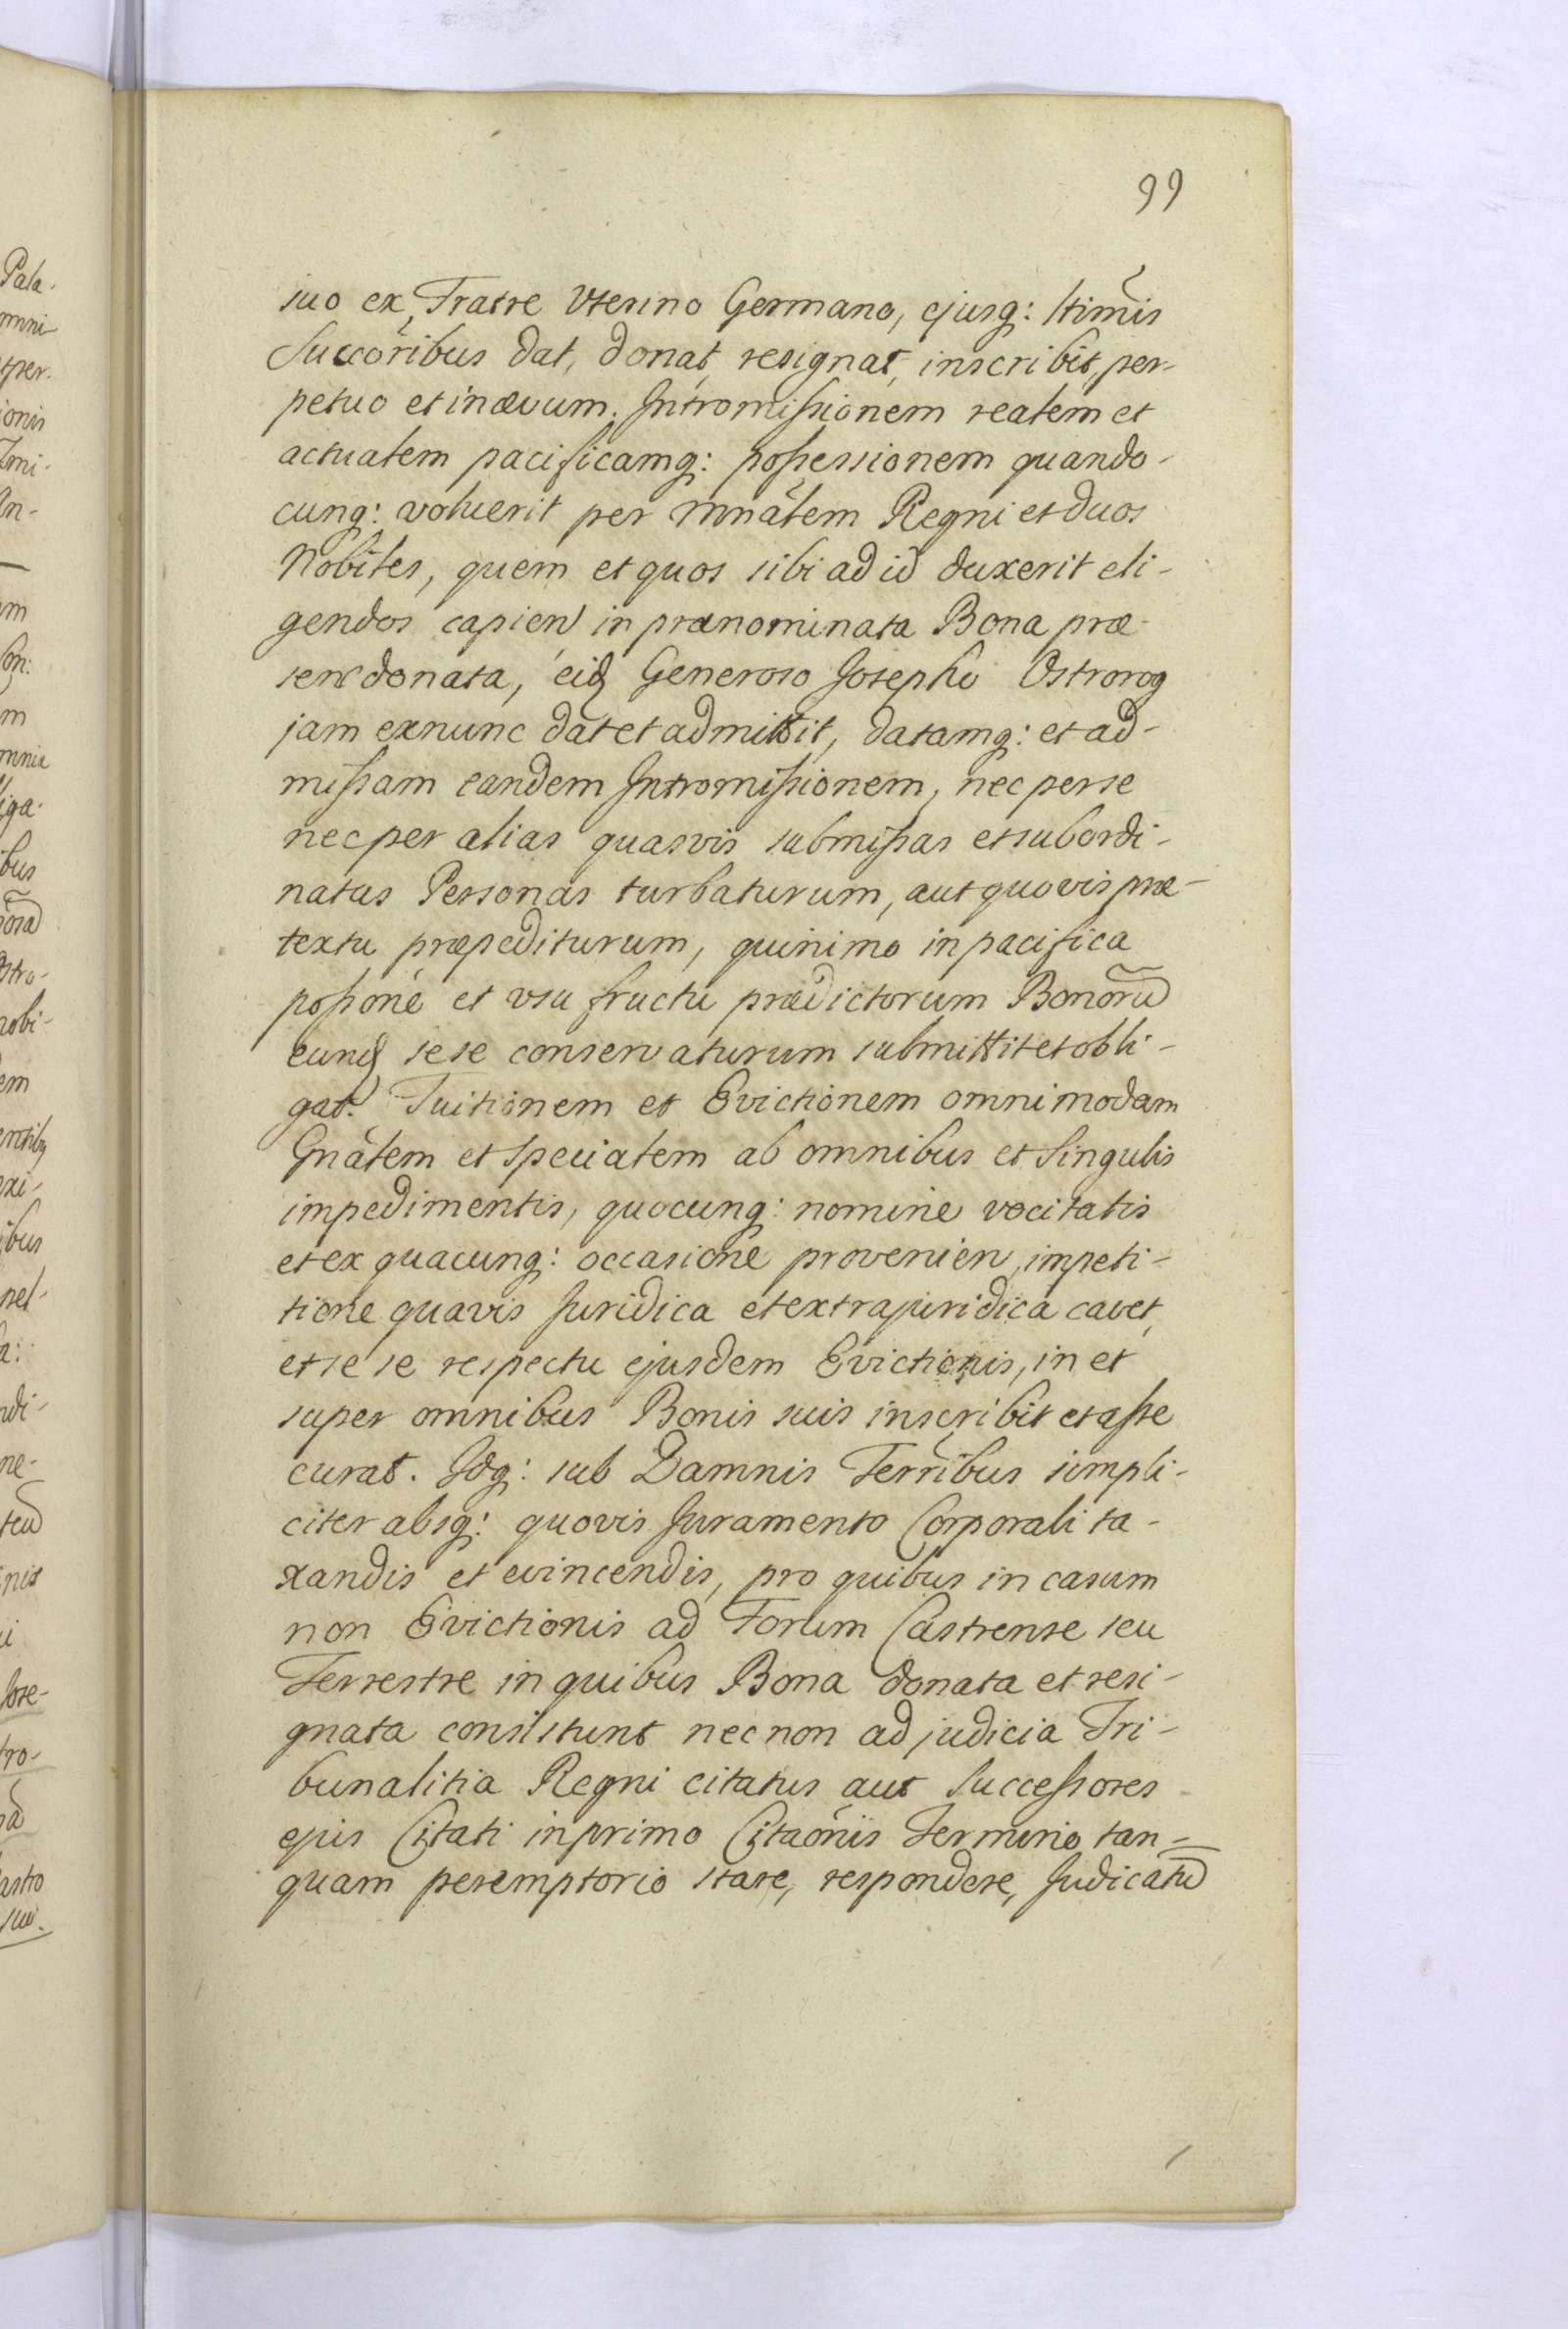 99
suo ex Fratre Vterino Germano, ejusq: ltimis
Succoribus dat, donat, resignat, inscribit, per-
petuo et in ævum. Intromissionem realem et
actualem pacificamq: possessionem quando-
cunq: voluerit per Mnālem Regni et duos
Nobiles, quem et quos sibi ad id duxerit eli-
gendos capien in prænominata Bona præ-
sen donata, eid Generoso Josepho Ostrorog
jam exnunc dat et admittit, datamq: et ad-
missam eandem Intromissionem, nec per se
nec per alias quasvis submissas et subordi-
natas Personas turbaturum, aut quovis præ-
textu præpediturum, quinimo in pacifica
possone et vsu fructu prædictorum Bonorū
eund sese conservaturum submittit et obli-
gat. Tuitionem et Evictionem omnimodam
Gnālem et specialem ab omnibus et singulis
impedimentis, quocunq: nomine vocitatis
et ex quacunq: occasione provenien, impeti-
tione quavis Juridica et extrajuridica cavet,
et se se respectu ejusdem Evictionis, in et
super omnibus Bonis suis inscribit et asse
curat. Idq: sub Damnis Terribus simpli-
citer absq: quovis Juramento Corporali ta-
xandis et evincendis, pro quibus in casum
non Evictionis ad Forum Castrense seu
Terrestre in quibus Bona donata et resi-
gnata consistunt nec non ad judicia Tri-
bunalitia Regni citatus aut Successores
ejus Citati in primo Citaōnis Termino tan-
quam peremptorio stare, respondere, Judicatū